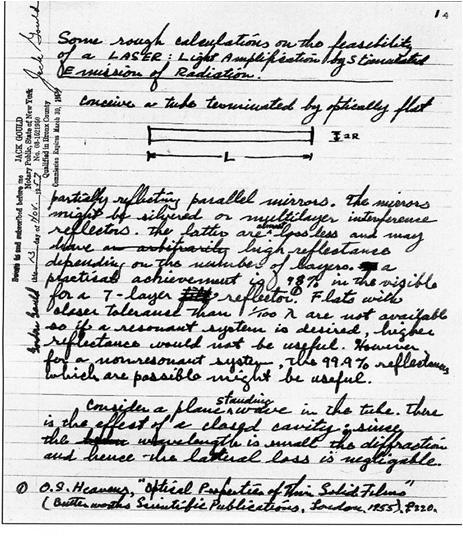 1
Some rough calculations on the feasibility
of a LASER: Light Amplification by Stimulated
Emission of Radiation.
conceive a tube terminated by optically flat
2R
L
partially reflecting parallel mirrors. The mirrors
might be silvered or multilayer interference
reflectors. The latter are almost lossless and may
have an arbitrarily high reflectance
depending on the number of layers. a
practical achievement is 98% in the visible
for a 7-layer reflector.① Flats with
closer tolerance than 1/100 λ are not available
so if a resonant system is desired, higher
reflectance would not be useful. However
for a nonresonant system, the 99.9% reflectances
which are possible might be useful.
Consider a plane standing wave in the tube. There
is the effect of a closed cavity; since
the wavelength is small the diffraction
and hence the lateral loss is negligable.
① O.S. Heavens, "Optical Properties of Thin Solid Films"
(Butterworths Scientific Publications, London, 1955), p220.
Gordon Gould
Sworn to and subscribed before me
this 13 day of Nov. 1957
Jack Gould
JACK GOULD
Notary Public, State of New York
Qualified in Bronx County
Commission Expires March 30,